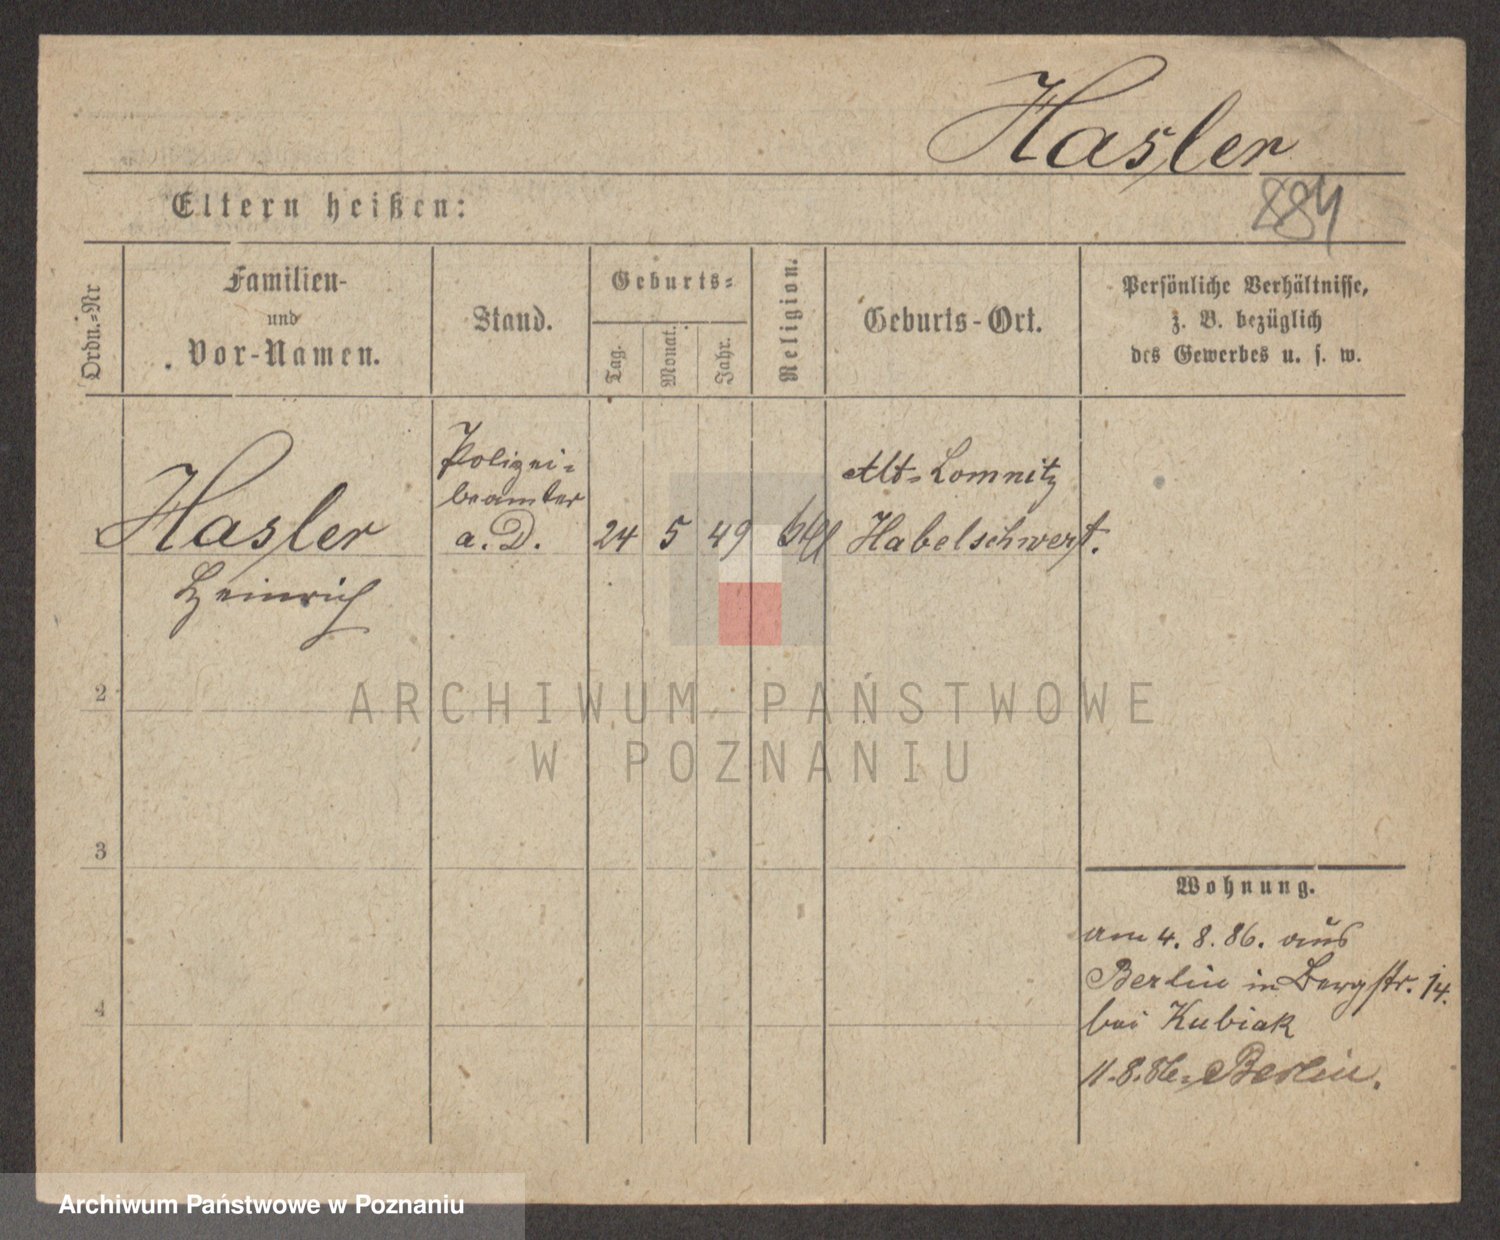 Hasler
884
Eltern heißen:
Ordn.-Nr
Familien-
und
Vor-Namen.
Stand.
Geburts-
Tag.
Monat.
Jahr.
Religion.
Geburts-Ort.
Persönliche Verhältnisse,
z. B. bezüglich
des Gewerbes u. s. w.
Hasler
Heinrich
Polizei-
beamter
a. D.
24 5 49
Alt-Lomnitz
Habelschwert.
2
3
4
Wohnung.
am 4. 8. 86. aus
Berlin in Bergstr. 14.
bei Kubiak
11.8.86, Berlin.
ARCHIWUM PAŃSTWOWE
W POZNANIU
Archiwum Państwowe w Poznaniu